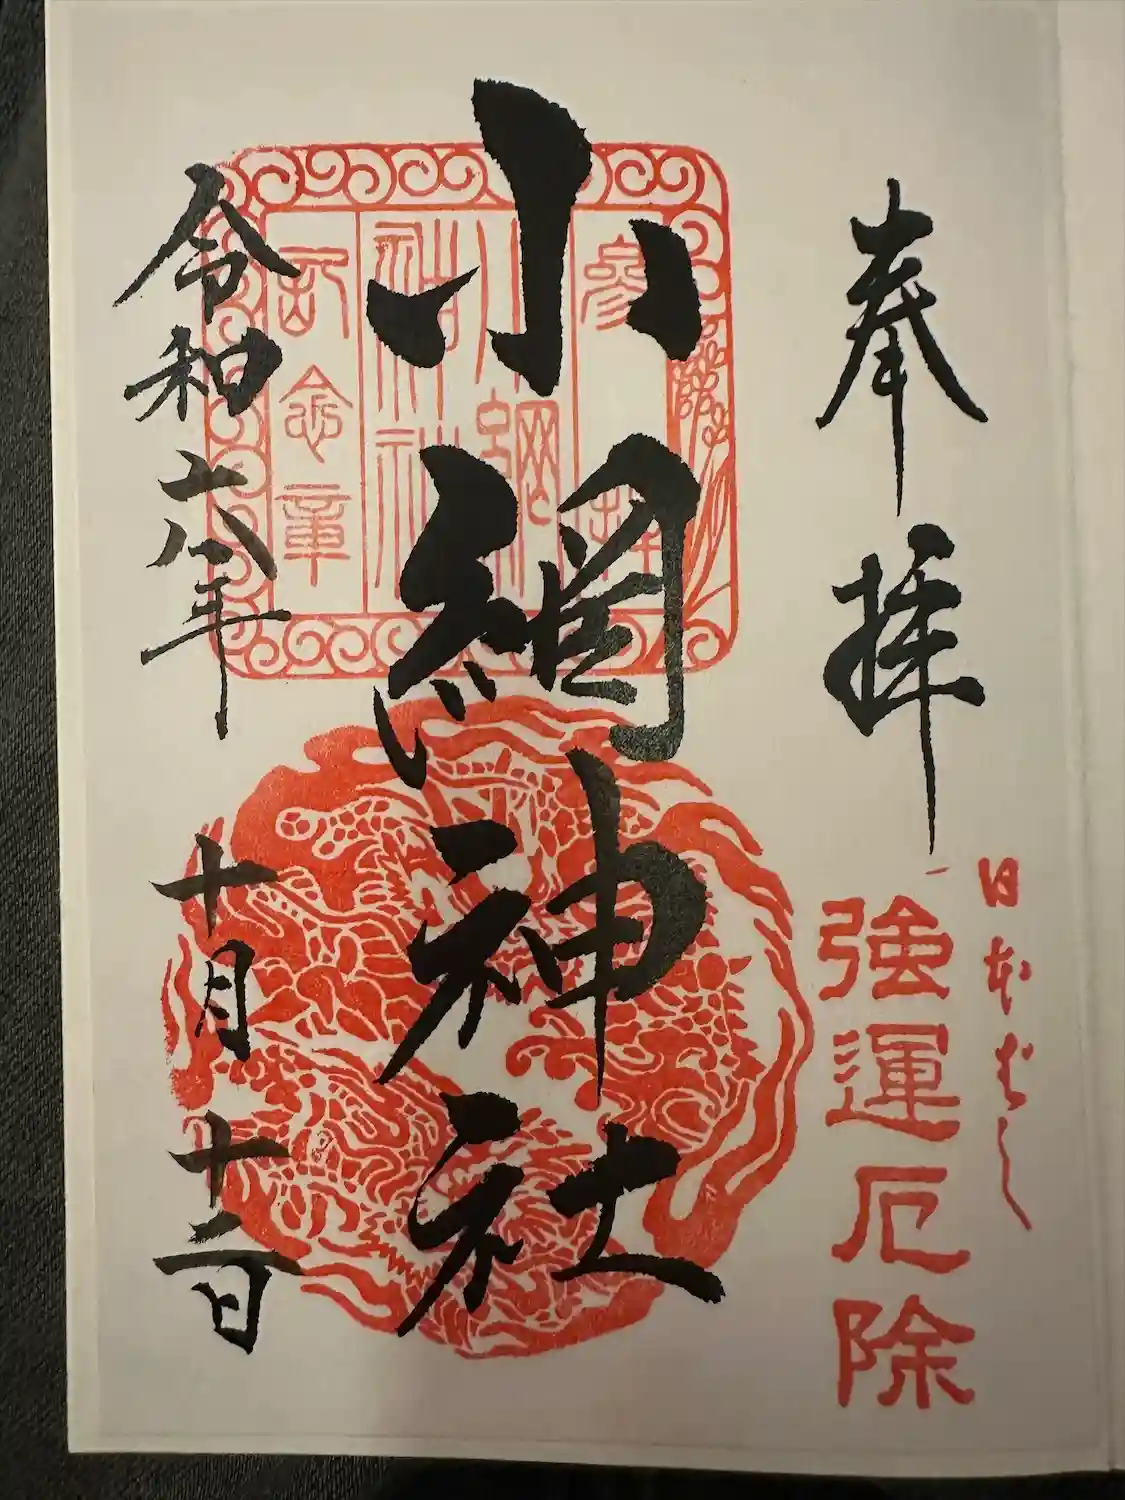 日本ばし
奉拝
強運厄除
小網神社
參拝
小網神社
記念章
令和六年十月十二日